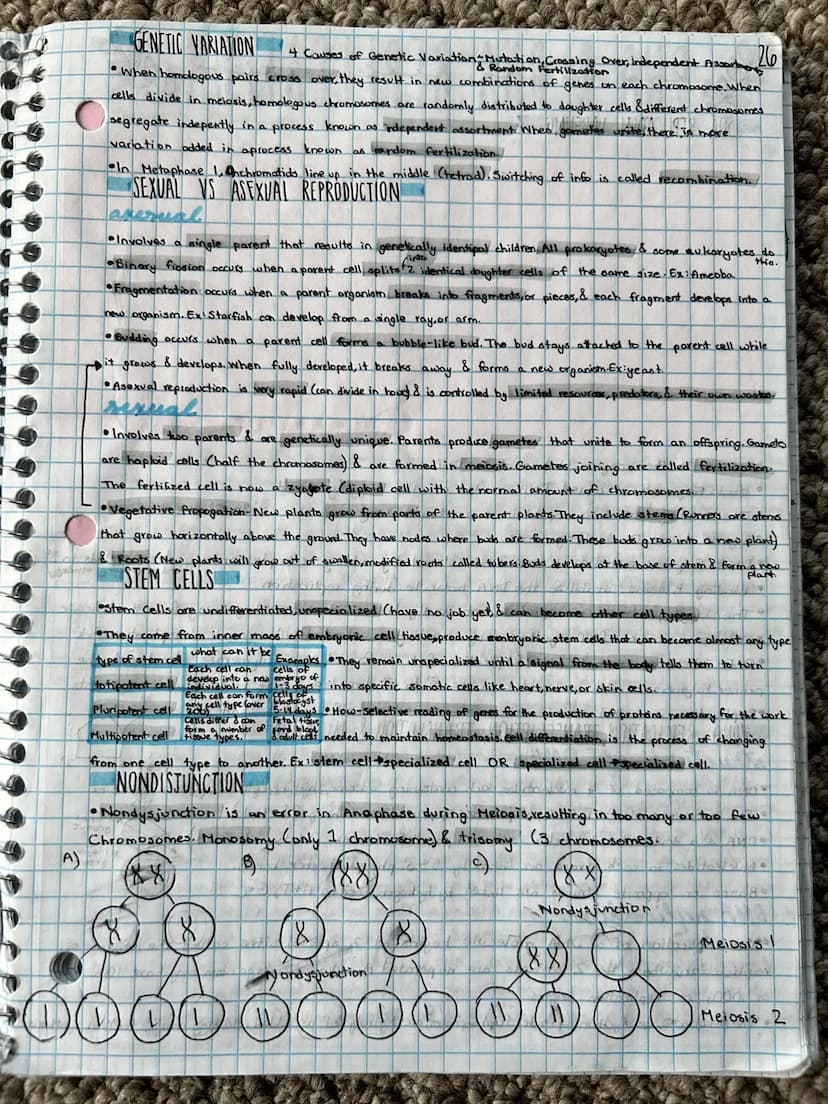 GENETIC VARIATION
4 Causes of Genetic Variation-Mutation, Crossing Over, independent Assortment,
& Random Fertilization
26
•When homologous pairs cross over, they result in new combinations of genes on each chromosome. When
cells divide in meiosis, homologous chromosomes are randomly distributed to daughter cells & different chromosomes
segregate indepently in a process known as independent assortment. When gametes unite, there is more
variation added in a process known as random fertilization
•In Metaphase 1, chromatids line up in the middle (tetrad). Switching of info is called recombination.
SEXUAL VS ASEXUAL REPRODUCTION
asexual
•Involves a single parent that results in genetically identical children. All prokaryotes & some eukaryotes do
this.
•Binary fission occurs when a parent cell splits into 2 identical daughter cells of the same size. Ex: Ameoba
•Fragmentation occurs when a parent organism breaks into fragments, or pieces, & each fragment develops into a
new organism. Ex: Starfish can develop from a single ray, or arm.
•Budding occurs when a parent cell forms a bubble-like bud. The bud stays attached to the parent cell while
it grows & develops. When fully developed, it breaks away & forms a new organism. Ex: yeast.
•Asexual reproduction is very rapid (can divide in hour) & is controlled by limited resources, predators, & their own waste.
sexual
•Involves two parents & are genetically unique. Parents produce gametes that unite to form an offspring. Gametes
are haploid cells (half the chromosomes) & are formed in meiosis. Gametes joining are called fertilization.
The fertilized cell is now a zygote (diploid cell with the normal amount of chromosomes.
•Vegetative Propogation- New plants grow from parts of the parent plants. They include stems (Runners are stems
that grow horizontally above the ground. They have nodes where buds are formed. These buds grow into a new plant)
& Roots (New plants will grow out of swollen, modified roots called tubers. Buds develops at the base of stem & form a new
plant
STEM CELLS
•Stem Cells are undifferentiated, unspecialized (have no job yet, & can become other cell types.
•They come from inner mass of embryonic cell tissue, produce embryonic stem cells that can become almost any type
type of stem cell | what can it be | Examples
totipotent cell | Each cell can develop into a new individual. | cells of embryo of 1-3 days
Pluripotent cell | Each cell can form any cell type (over 200) | cells of blastocyst 5-14 days
Multipotent cell | Cells differ & can form a number of tissue types. | Fetal tissue, cord blood & adult cells
•They remain unspecialized until a signal from the body tells them to turn
into specific somatic cells like heart, nerve, or skin cells.
•How-selective reading of genes for the production of protiens necessary for the work
needed to maintain homeostasis. cell differentiation is the process of changing
from one cell type to another. Ex: stem cell→specialized cell OR specialized cell→specialized cell.
NONDISJUNCTION
•Nondysjunction is an error in Anaphase during Meiosis, resulting in too many or too few
Chromosomes. Monosomy (only 1 chromosome) & trisomy (3 chromosomes.
A) B) C)
Nondysjunction
Meiosis 1
Nondysjunction
Meiosis 2